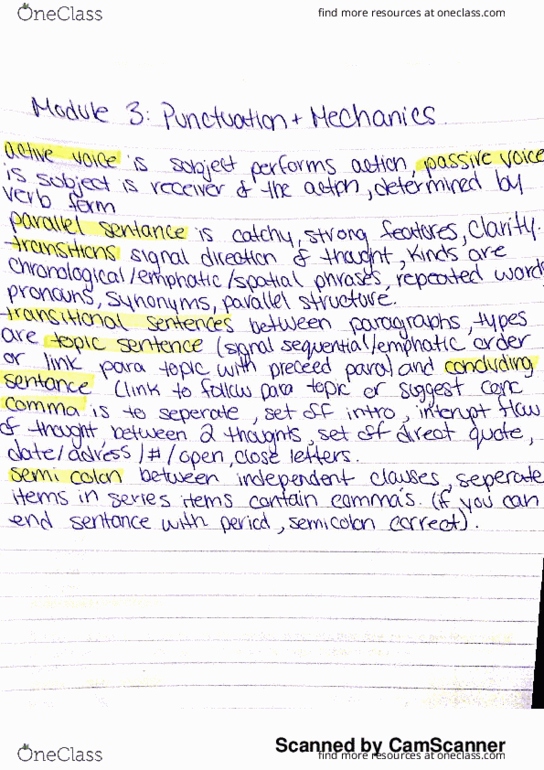 OneClass find more resources at oneclass.com
Module 3: Punctuation + Mechanics.
active voice is subject performs action, passive voice
is subject is receiver of the action, determined by
verb form
parallel sentence is catchy, strong features, Clarity.
transitions signal direction of thought, kinds are
chronological/emphatic/spatial phrases, repeated words
pronouns, synonyms, parallel structure.
transitional sentences between paragraphs, types
are topic sentence (signal sequential/emphatic order
or link para topic with preceed para) and concluding
sentence (link to follow para topic or suggest conc
comma is to seperate, set off intro, interupt flow
of thought, between 2 thoughts, set off direct quote,
date/adress/#/open, close letters.
semi colon between independent clauses, seperate
items in series items contain comma's. (if you can
end sentence with period, semicolon correct).
Scanned by CamScanner
OneClass find more resources at oneclass.com